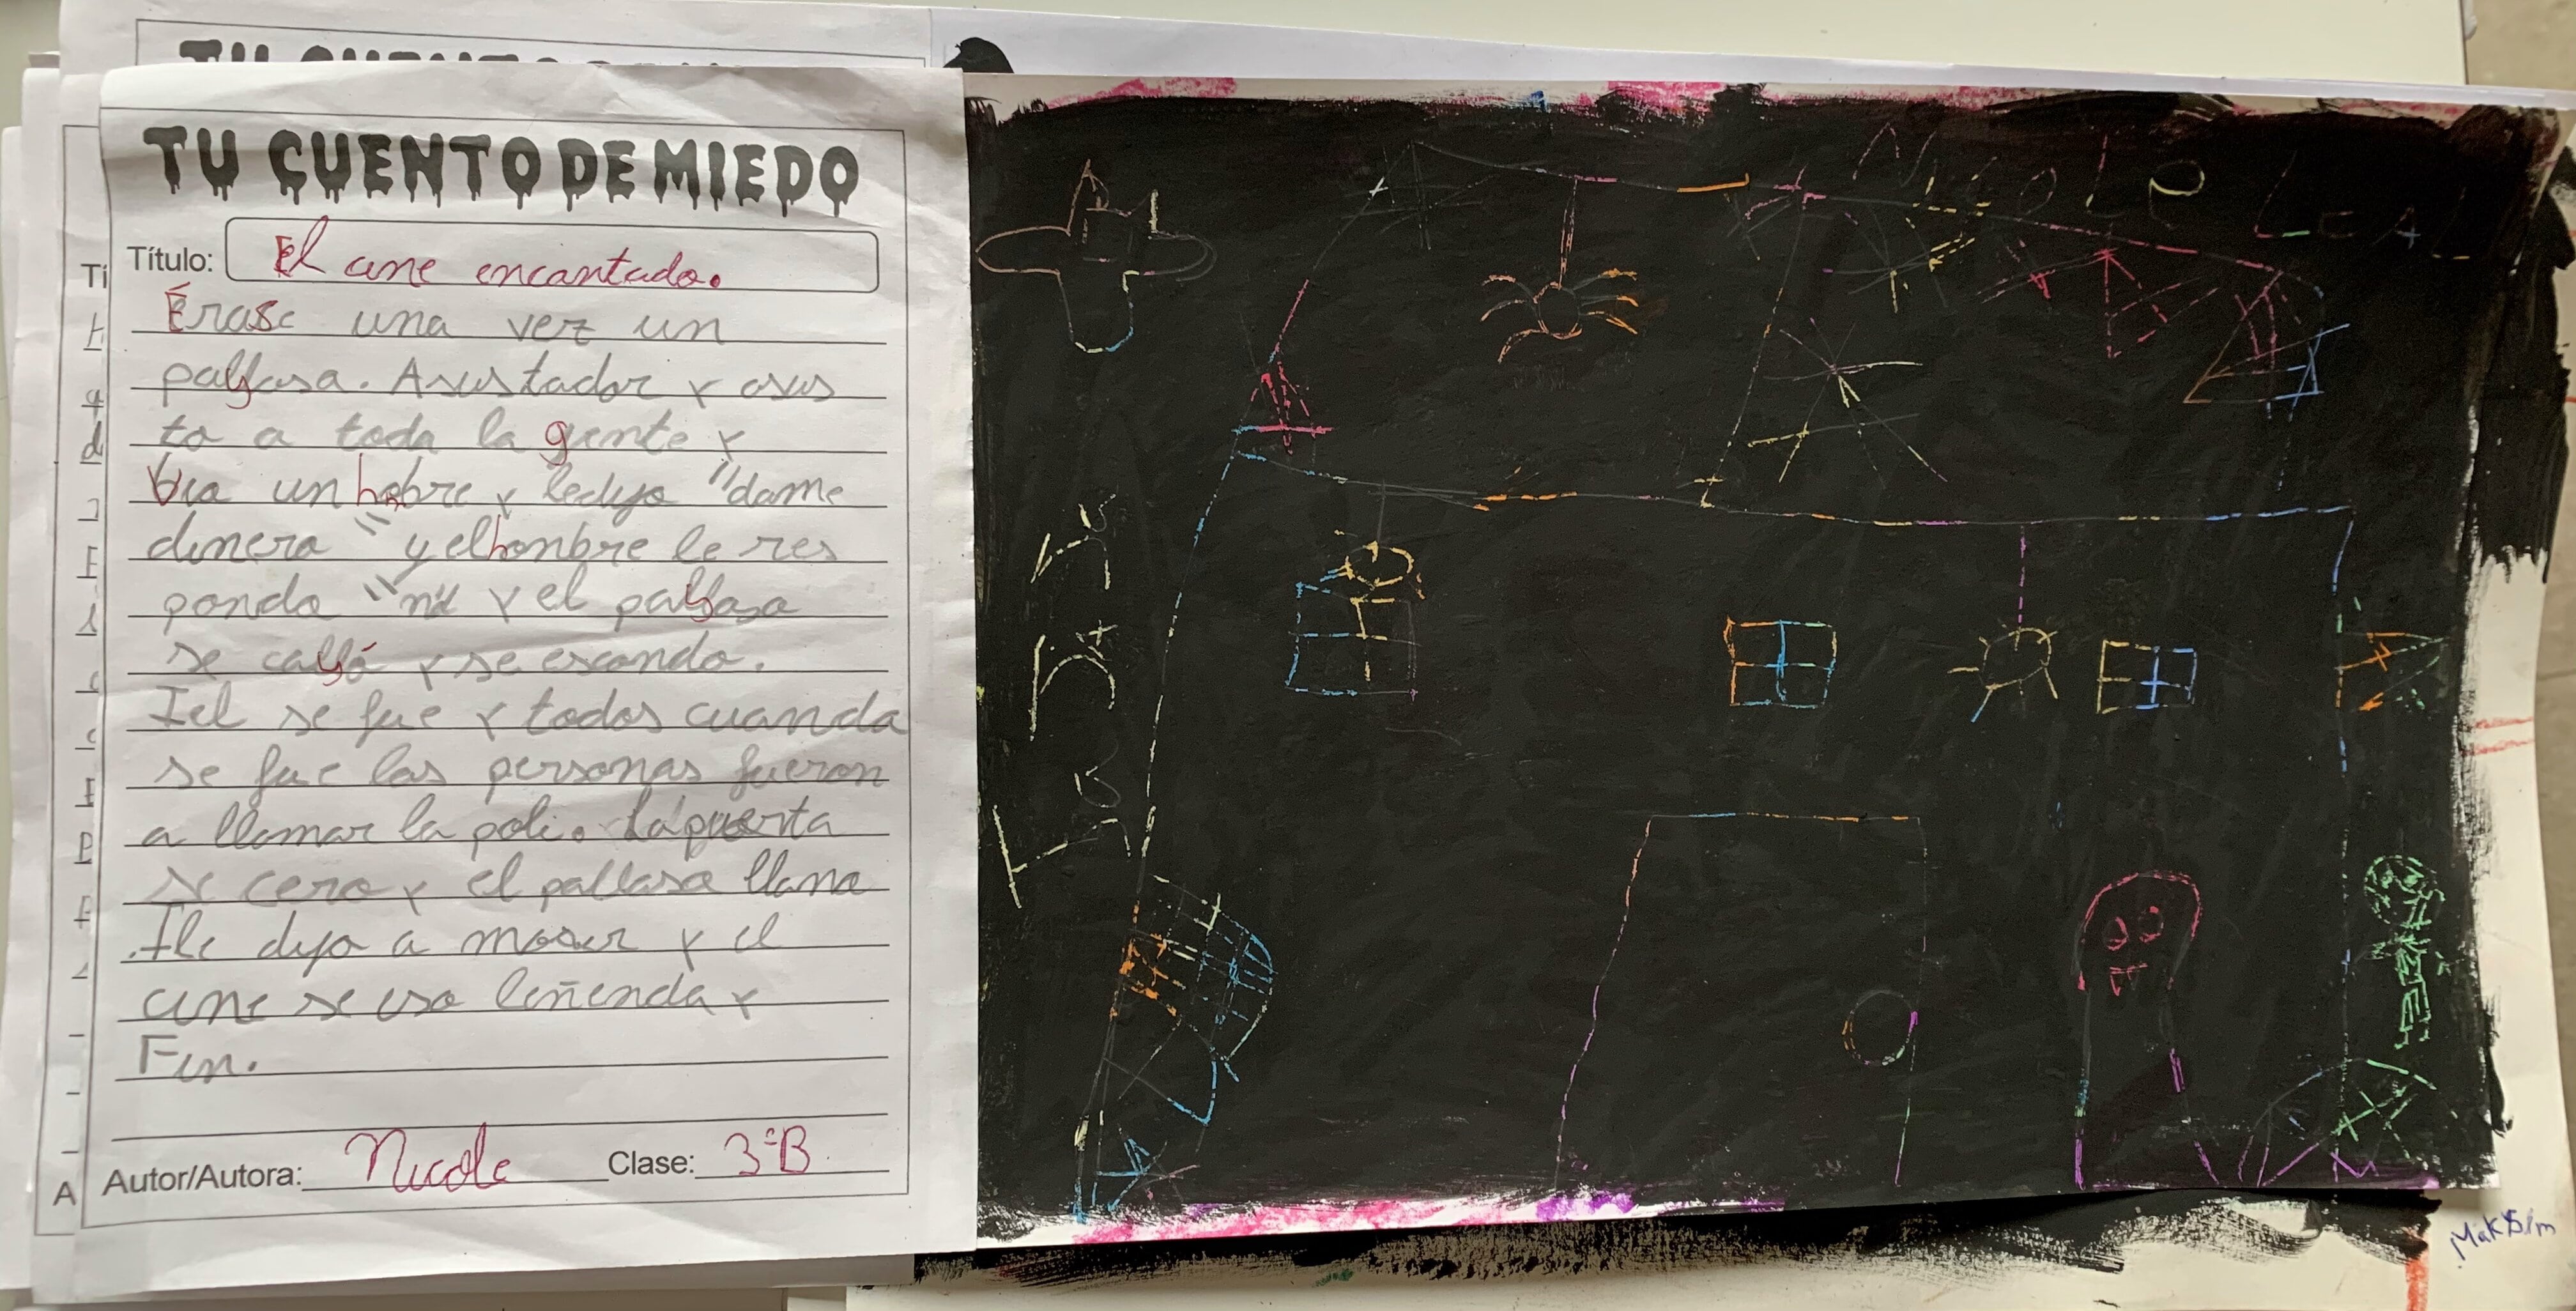 TU CUENTO DE MIEDO
Título: El cine encantado.
Érase una vez un
payaso. Asustador y asus
to a toda la gente y
Via un hobre y ledijo "dame
dinero" y elhonbre le res
pondo "no" y el payaso
se cayó y se escondo.
I el se fue y todos cuando
se fue las personas fueron
a llamar la poli. La puerta
se cero y el pallaso llama
I le dijo a y el
cine se iso leñenda y
Fin.
Autor/Autora: Nicole Clase: 3ºB
NicolE LEAL
MakSim